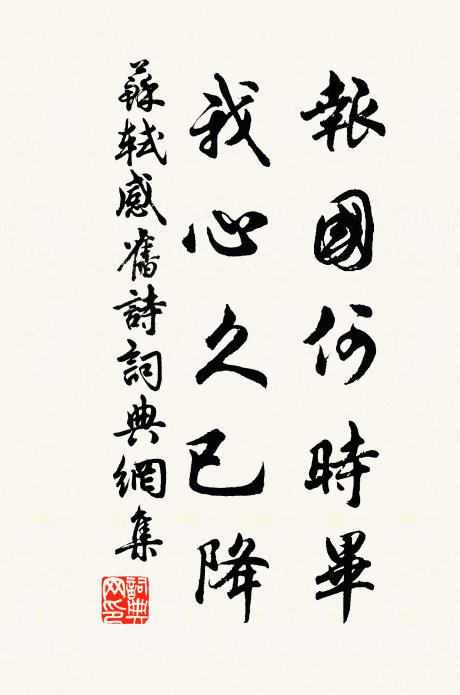 報國何時畢
我心久已降
蘇軾感舊詩詞典網集
詞典網印